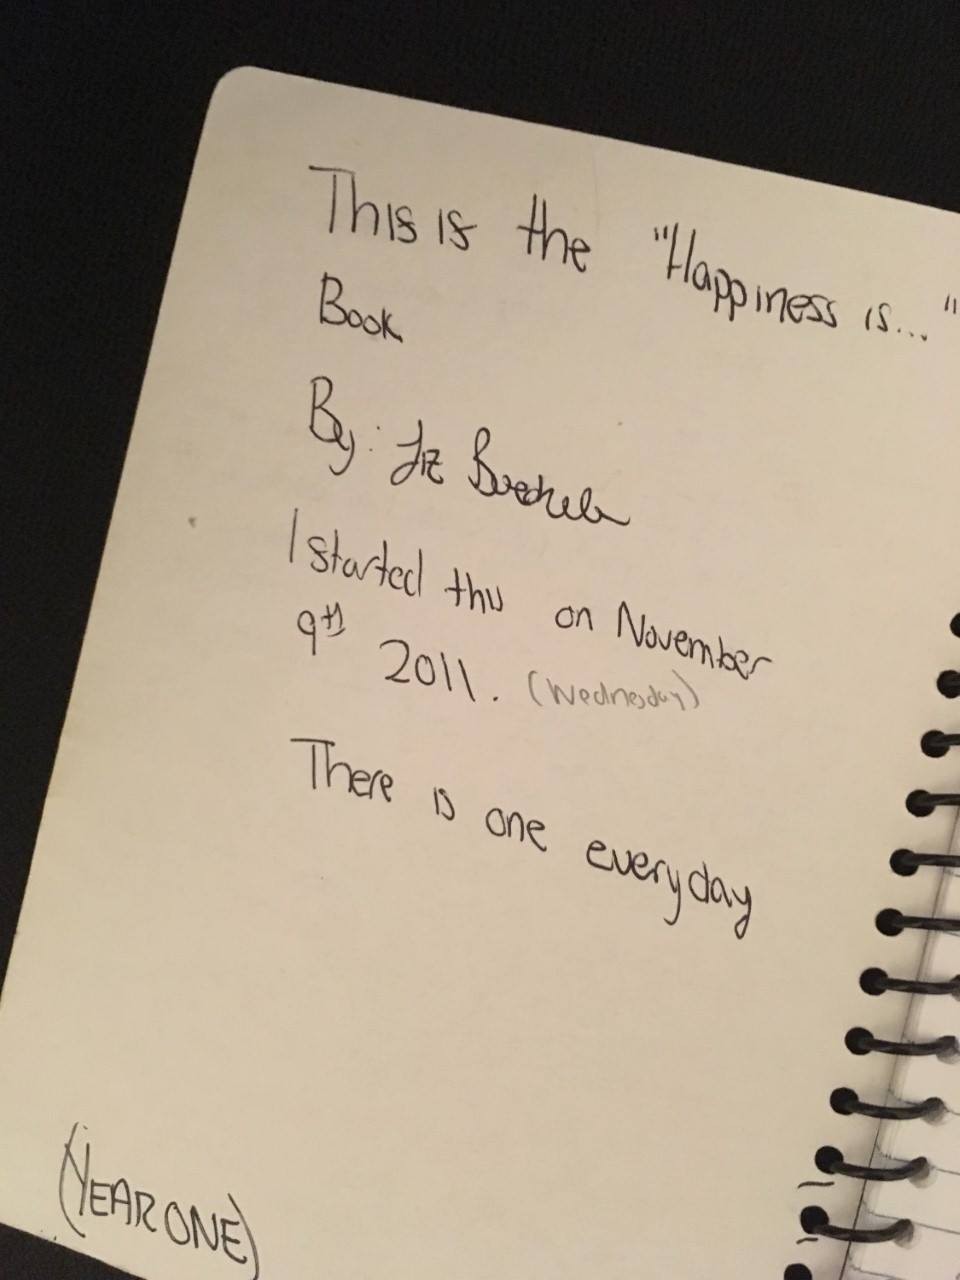 This is the "Happiness is..."
Book
By: Liz
I started this on November
9th 2011. (Wednesday)
There is one everyday
(YEAR ONE)